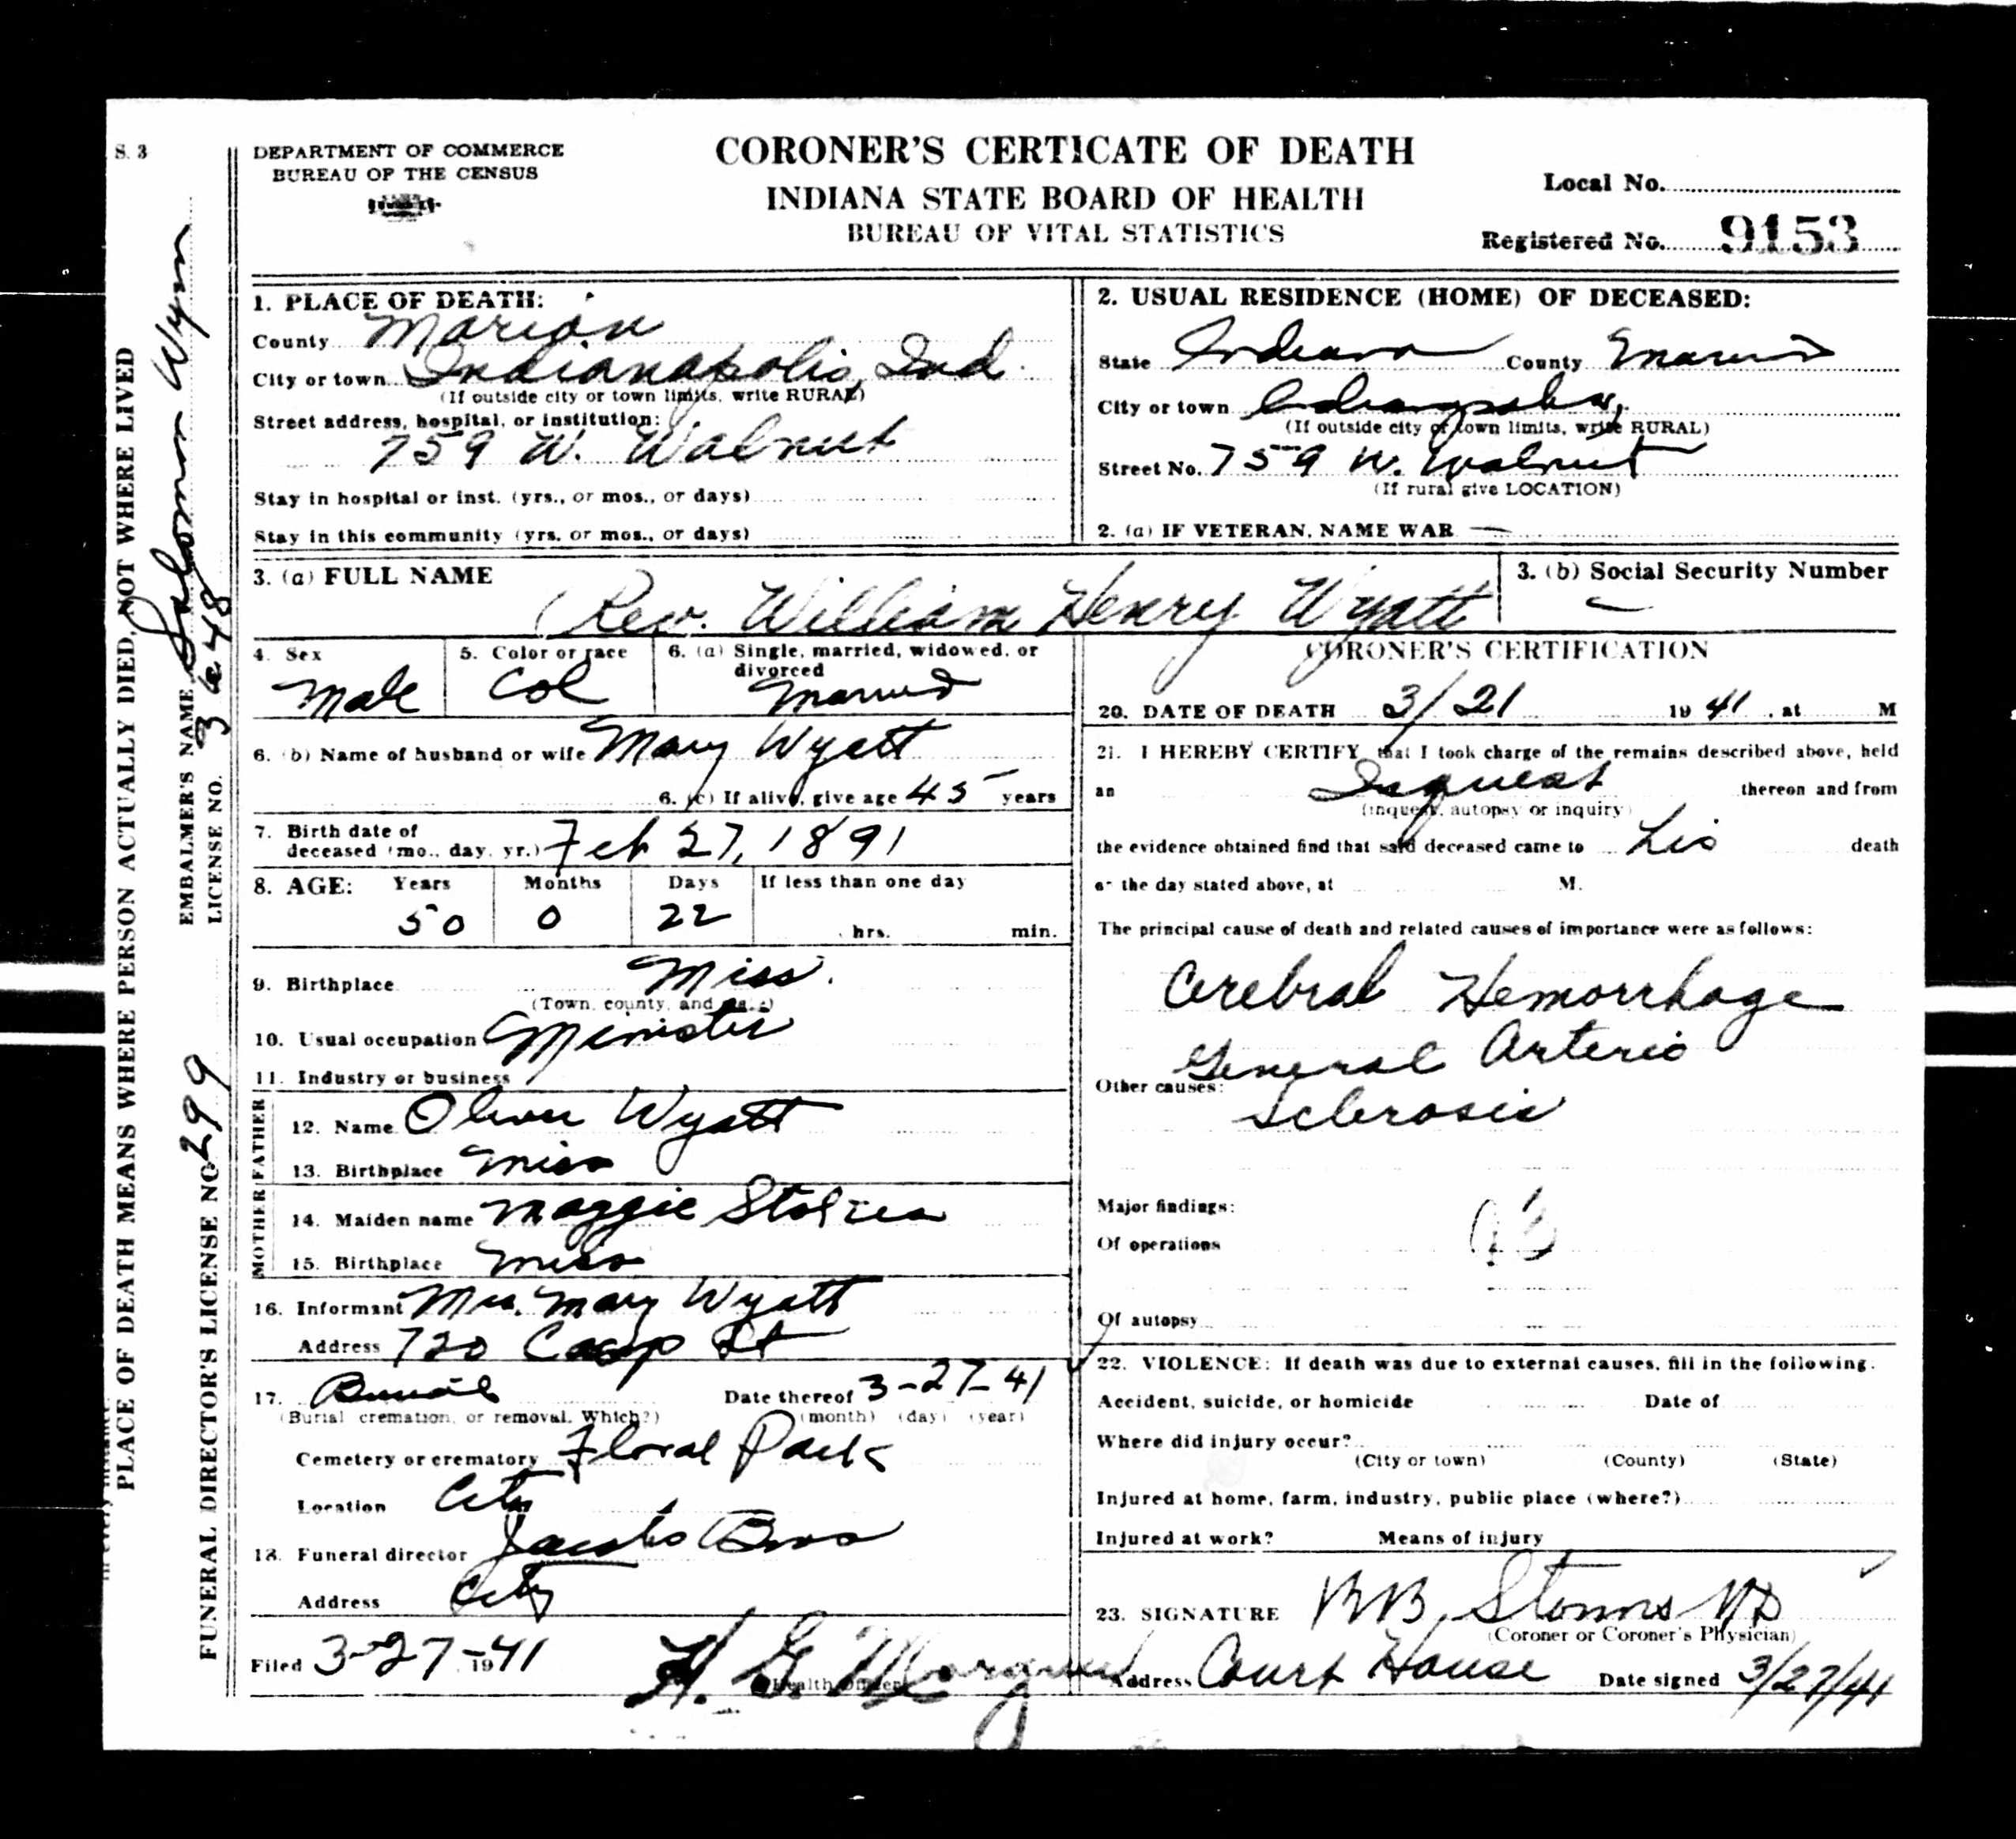 S. 3
DEPARTMENT OF COMMERCE
BUREAU OF THE CENSUS
CORONER'S CERTICATE OF DEATH
INDIANA STATE BOARD OF HEALTH
BUREAU OF VITAL STATISTICS
Local No.
Registered No. 9153
PLACE OF DEATH MEANS WHERE PERSON ACTUALLY DIED, NOT WHERE LIVED
EMBALMER'S NAME Solomon Wynn
LICENSE NO.
FUNERAL DIRECTOR'S LICENSE NO 299
1. PLACE OF DEATH:
County Marion
City or town Indianapolis, Ind.
(If outside city or town limits, write RURAL)
Street address, hospital, or institution:
759 W. Walnut
Stay in hospital or inst. (yrs., or mos., or days)
Stay in this community (yrs. or mos., or days)
2. USUAL RESIDENCE (HOME) OF DECEASED:
State Indiana County Marion
City or town Indianapolis,
(If outside city or town limits, write RURAL)
Street No. 759 W. Walnut
(If rural give LOCATION)
2. (a) IF VETERAN, NAME WAR —
3. (a) FULL NAME Rev. William Henry Wyatt
3. (b) Social Security Number
—
4. Sex Male
5. Color or race Col
6. (a) Single, married, widowed, or divorced Married
6. (b) Name of husband or wife Mary Wyatt
6. (c) If alive, give age 45 years
7. Birth date of
deceased (mo., day, yr.) Feb 27, 1891
8. AGE: Years Months Days If less than one day
50 0 22 hrs. min.
9. Birthplace Miss.
(Town, county, and state)
10. Usual occupation Minister
11. Industry or business
FATHER
12. Name Oliver Wyatt
13. Birthplace Miss
MOTHER
14. Maiden name Maggie
15. Birthplace Miss
16. Informant Mrs. Mary Wyatt
Address 720 Camp St
17. Burial Date thereof 3-27-41
(Burial, cremation, or removal. Which?) (month) (day) (year)
Cemetery or crematory Floral Park
Location City
18. Funeral director Jacobs Bros
Address City
Filed 3-27-1941 H. G. Morgan
Health Officer
CORONER'S CERTIFICATION
20. DATE OF DEATH 3/21 1941, at M
21. I HEREBY CERTIFY that I took charge of the remains described above, held
an Inquest thereon and from
(inquest, autopsy or inquiry)
the evidence obtained find that said deceased came to his death
on the day stated above, at M.
The principal cause of death and related causes of importance were as follows:
Cerebral Hemorrhage
General Arterio
Other causes:
Sclerosis
Major findings:
Of operations
Of autopsy
22. VIOLENCE: If death was due to external causes, fill in the following.
Accident, suicide, or homicide Date of
Where did injury occur?
(City or town) (County) (State)
Injured at home, farm, industry, public place (where?)
Injured at work? Means of injury
23. SIGNATURE Storms MD
(Coroner or Coroner's Physician)
Address Court House Date signed 3/27/41